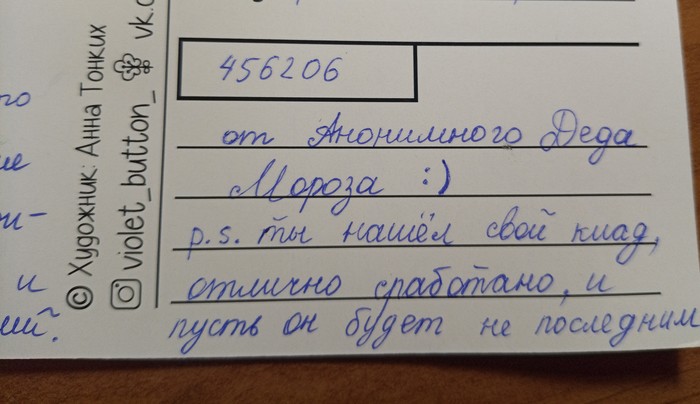 го
ие
и-
и
ий.
© Художник: Анна Тонких
violet_button_ vk.c
456206
от Анонимного Деда
Мороза :)
p.s. ты нашёл свой клад,
отлично сработано, и
пусть он будет не последним